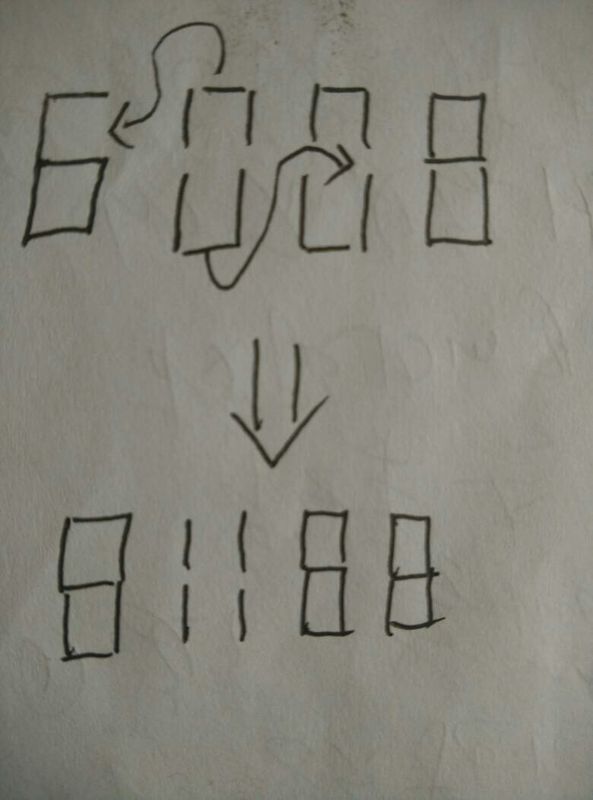 6008
81188